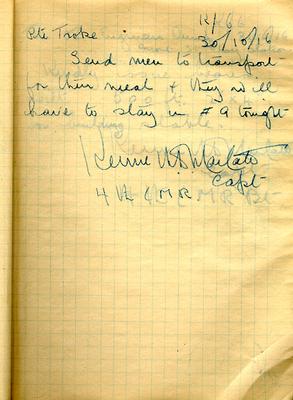 R/66
Pte Troke 30/10/16
Send men to transport
for their meal & they will
have to stay in # 9 tonight
Capt
4th CMR